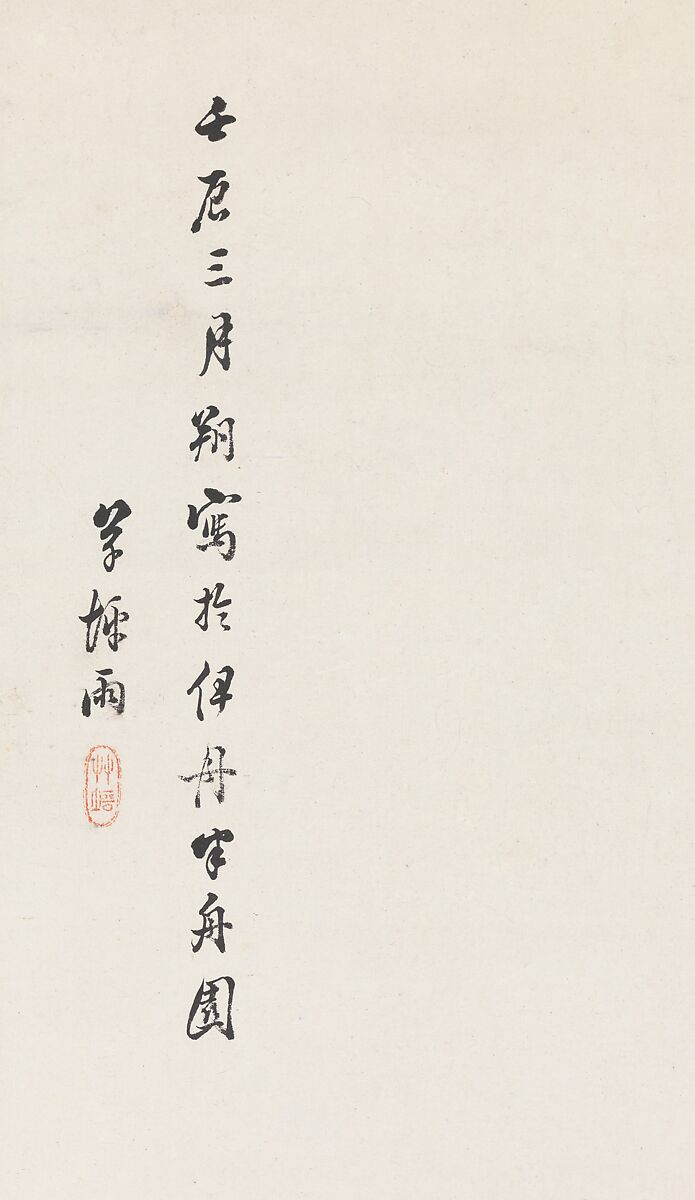 壬辰三月朔寫於伊丹舟園
草坪雨